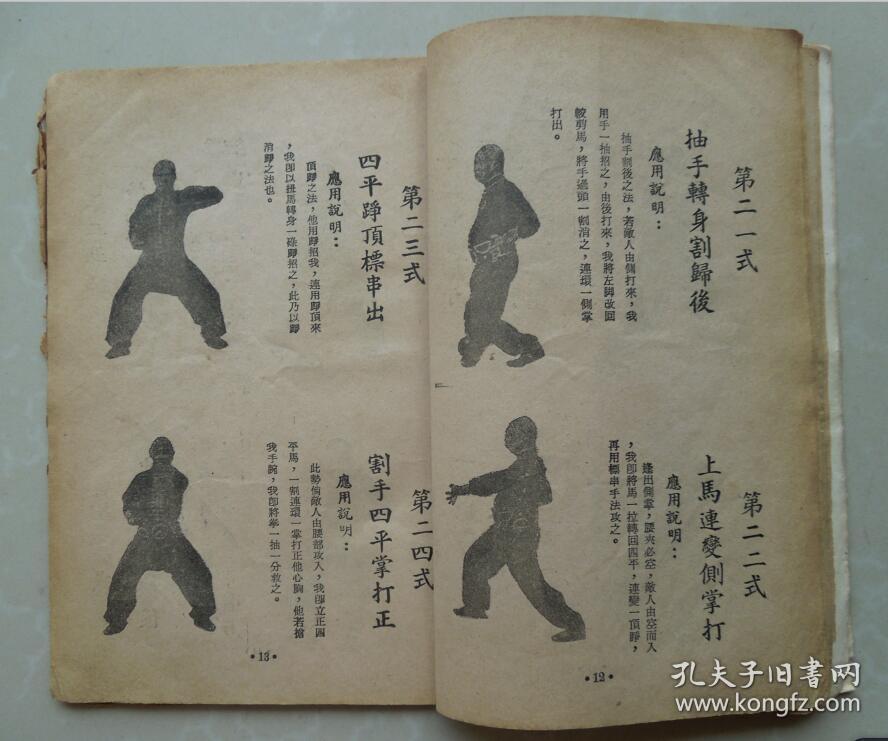 第二一式
抽手轉身割歸後
應用說明：
抽手割後之法，若敵人由側打來，我
用手一抽招之，由後打來，我將左脚改回
較剪馬，將手過頭一割消之，連環一側掌
打出。
第二二式
上馬連變側掌打
應用說明：
逢出側掌，腰夾必空，敵人由空而入
，我卽將馬一拉轉回四平，連變一頂踭，
再用標串手法攻之。
•12•
第二三式
四平踭頂標串出
應用說明：
頂踭之法，他用踭招我，連用踭頂來
，我卽以扭馬轉身一碌踭招之，此乃以踭
消踭之法也。
第二四式
割手四平掌打正
應用說明：
此勢倘敵人由腰部攻入，我卽立正四
平馬，一割連環一掌打正他心胸，他若搶
我手腕，我卽將拳一抽一分救之。
•13•
孔夫子旧书网
www.kongfz.com